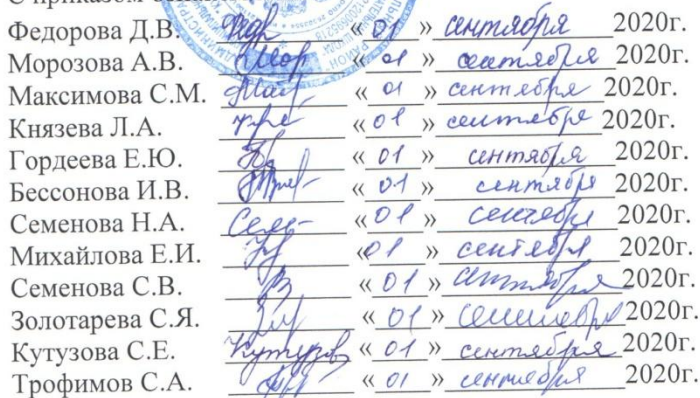 С приказом
Федорова Д.В. «01» сентября 2020г.
Морозова А.В. «01» сентября 2020г.
Максимова С.М. «01» сентября 2020г.
Князева Л.А. «01» сентября 2020г.
Гордеева Е.Ю. «01» сентября 2020г.
Бессонова И.В. «01» сентября 2020г.
Семенова Н.А. «01» сентября 2020г.
Михайлова Е.И. «01» сентября 2020г.
Семенова С.В. «01» сентября 2020г.
Золотарева С.Я. «01» сентября 2020г.
Кутузова С.Е. Кутузов «01» сентября 2020г.
Трофимов С.А. «01» сентября 2020г.